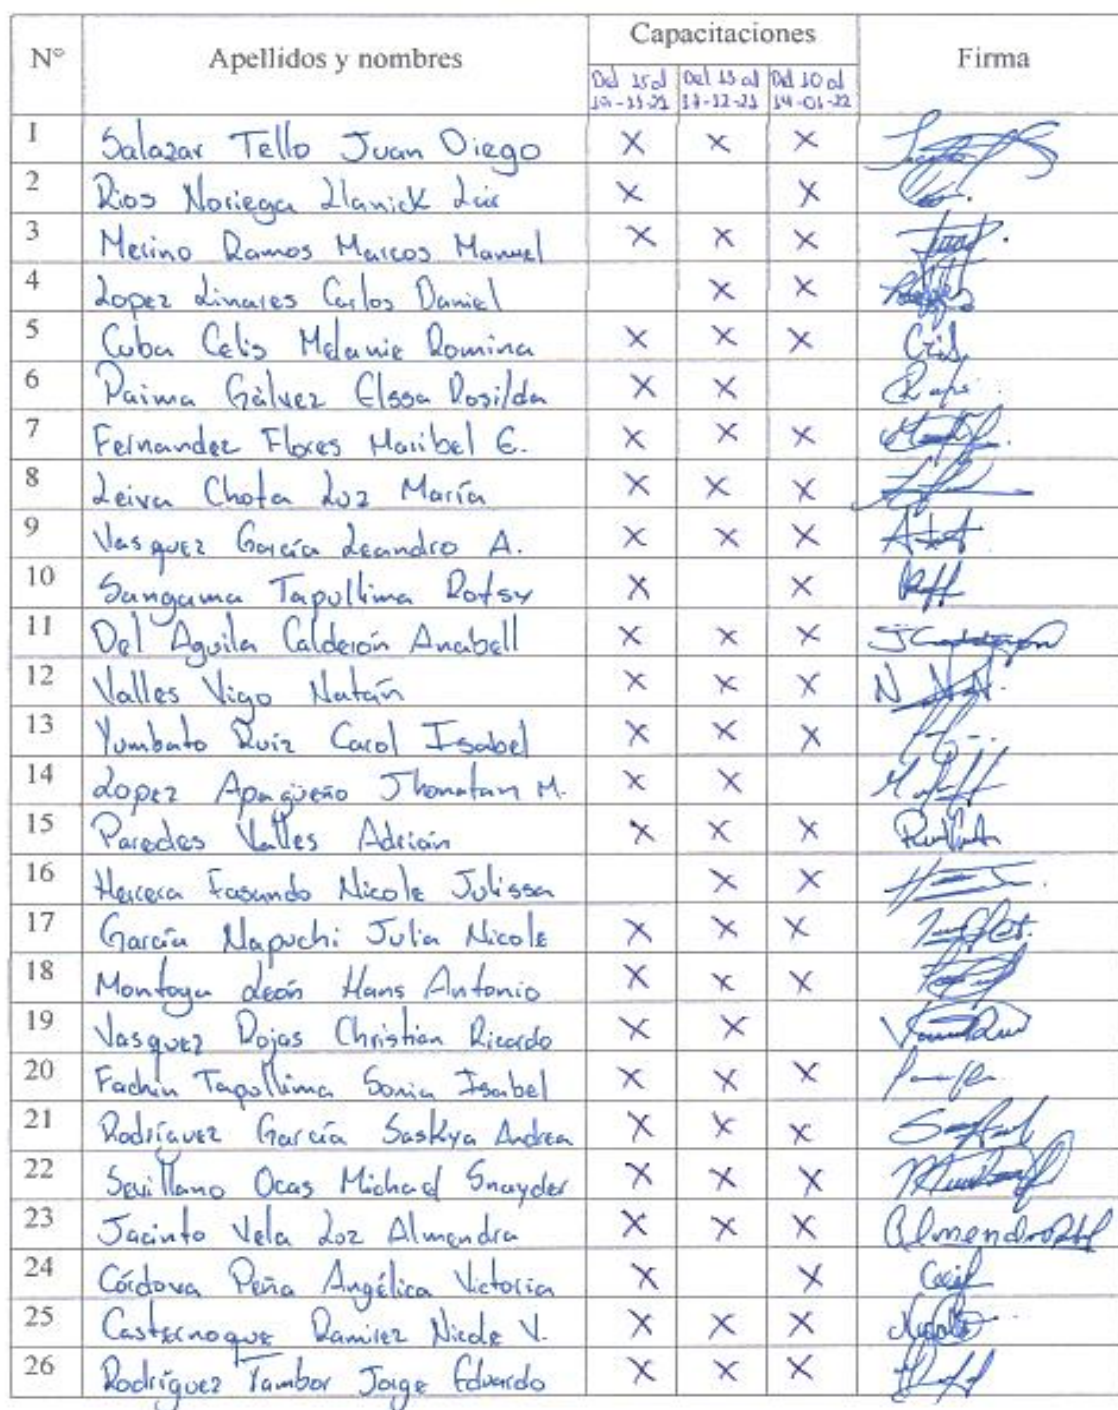 N° Apellidos y nombres Capacitaciones Firma
Del 15 al Del 13 al Del 10 al
19-11-21 17-12-21 14-01-22
1 Salazar Tello Juan Diego X X X
2 Rios Noriega Llanick Luis X X
3 Merino Ramos Marcos Manuel X X X
4 Lopez Linares Carlos Daniel X X
5 Cuba Celis Melanie Romina X X X
6 Paima Gálvez Elssa Rosilda X X
7 Fernandez Flores Maribel E. X X X
8 Leiva Chota Luz María X X X
9 Vasquez García Leandro A. X X X
10 Sangama Tapullima Rotsy X X
11 Del Aguila Calderón Anabell X X X
12 Valles Vigo Natán X X X
13 Yumbato Ruiz Carol Isabel X X X
14 Lopez Apagüeño Jhonatan M. X X
15 Paredes Valles Adrián X X X
16 Herrera Fasando Nicole Julissa X X
17 García Napuchi Julia Nicole X X X
18 Montoya León Hans Antonio X X X
19 Vasquez Rojas Christian Ricardo X X
20 Fachin Tapullima Sonia Isabel X X X
21 Rodríguez García Saskya Andrea X X X
22 Sevillano Ocas Michael Snayder X X X
23 Jacinto Vela Luz Almendra X X X
24 Córdova Peña Angélica Victoria X X
25 Casternoque Ramirez Nicole V. X X X
26 Rodríguez Tambor Jorge Eduardo X X X